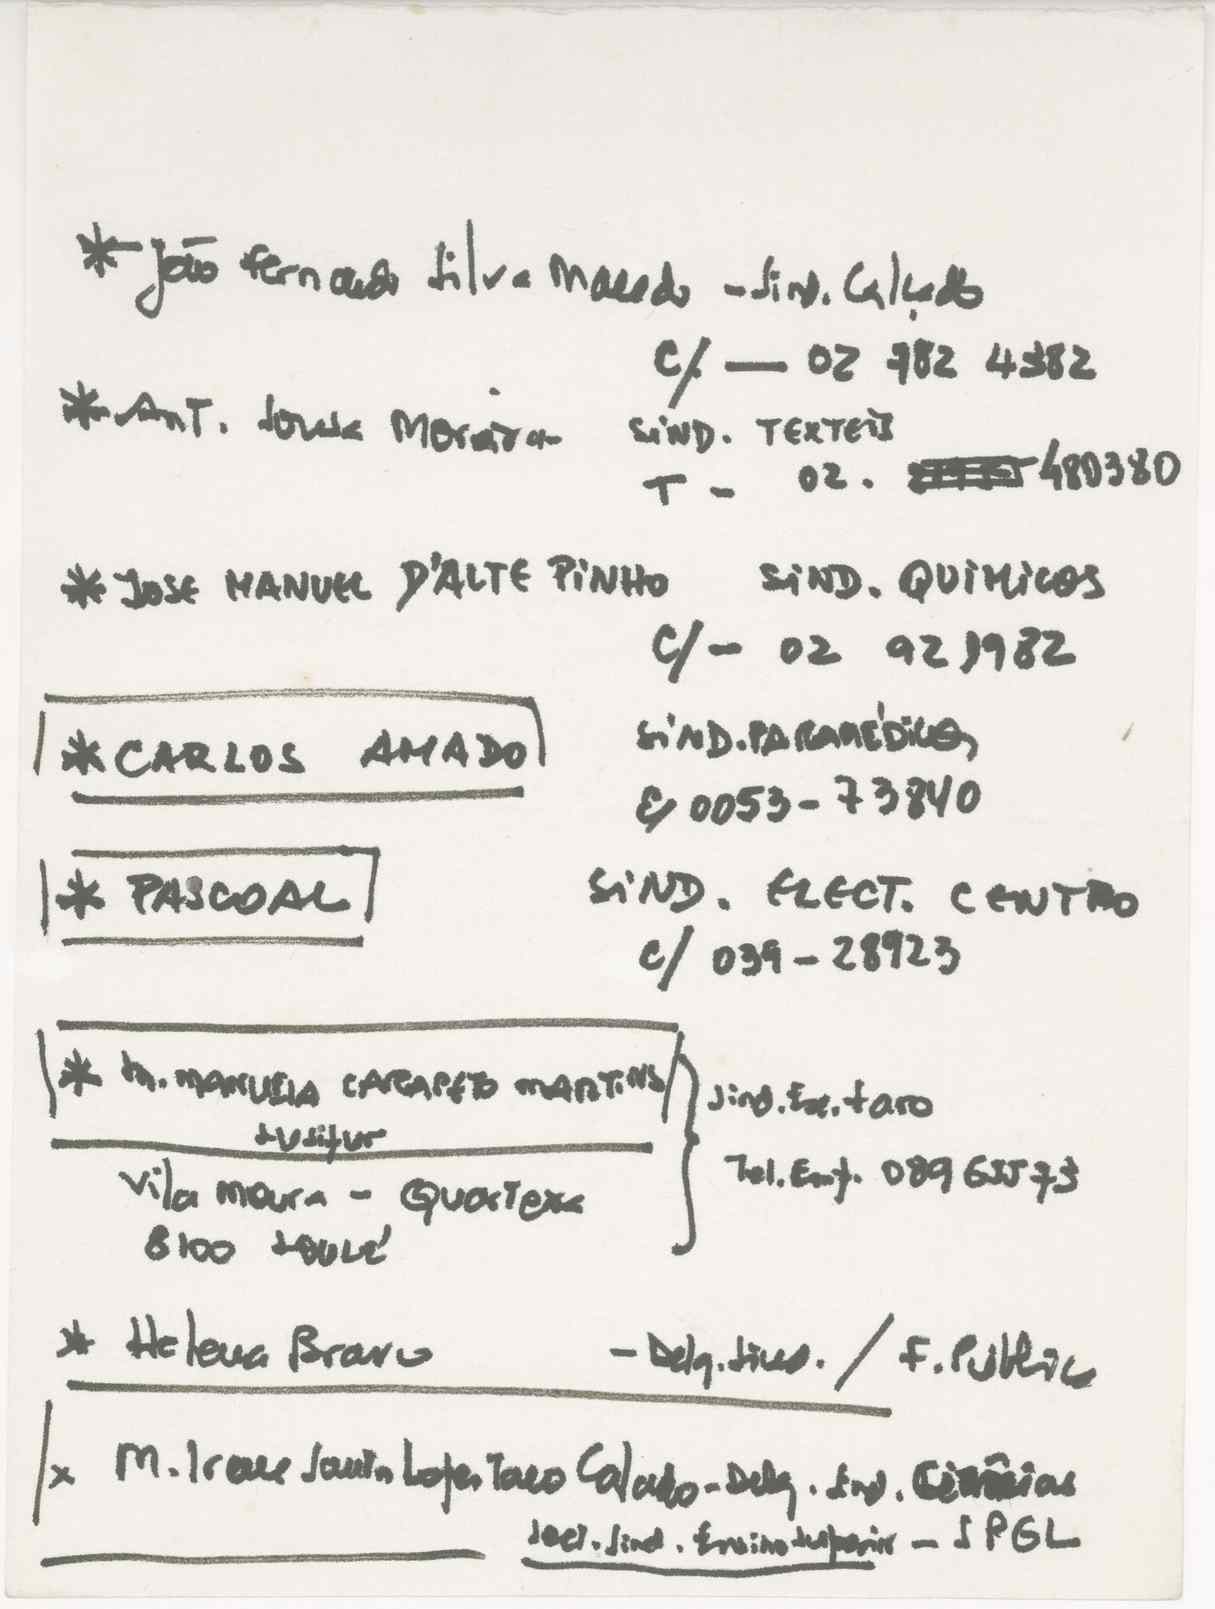 * João Fernando Silva Macedo - Sind. Calçado
C/ — 02 982 4382
* ANT. Sousa Moreira SIND. TEXTEIS
T - 02. 480380
* JOSE MANUEL D'ALTE PINHO SIND. QUIMICOS
C/ - 02 921982
* CARLOS AMADO SIND. PARAMÉDICOS
C/ 0053 - 73840
* PASCOAL SIND. ELECT. CENTRO
C/ 039 - 28923
* M. MANUELA CARAPETO MARTINS Sind. Esc. Faro
Lusitur
Tel. Emp. 089 65573
Vila moura - Quarteira
8100 LOULÉ
* Helena Bravo - Delg. Sind. / F. Pública
x M. Irene Lopes Calado - Delg. Sind. Ciências
Sect. Sind. Ensino Superior - SPGL